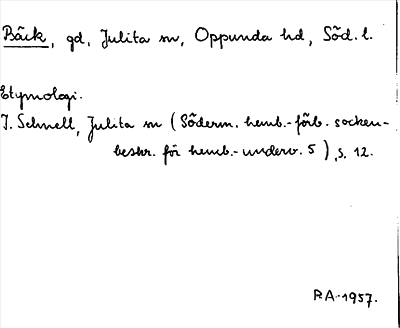 Bäck, gd, Julita sn, Oppunda hd, Söd. l.
Etymologi.
I. Schnell, Julita sn (Söderm. hemb.-förb. socken-
beskr. för hemb.-underv. 5), s. 12.
RA-1957.